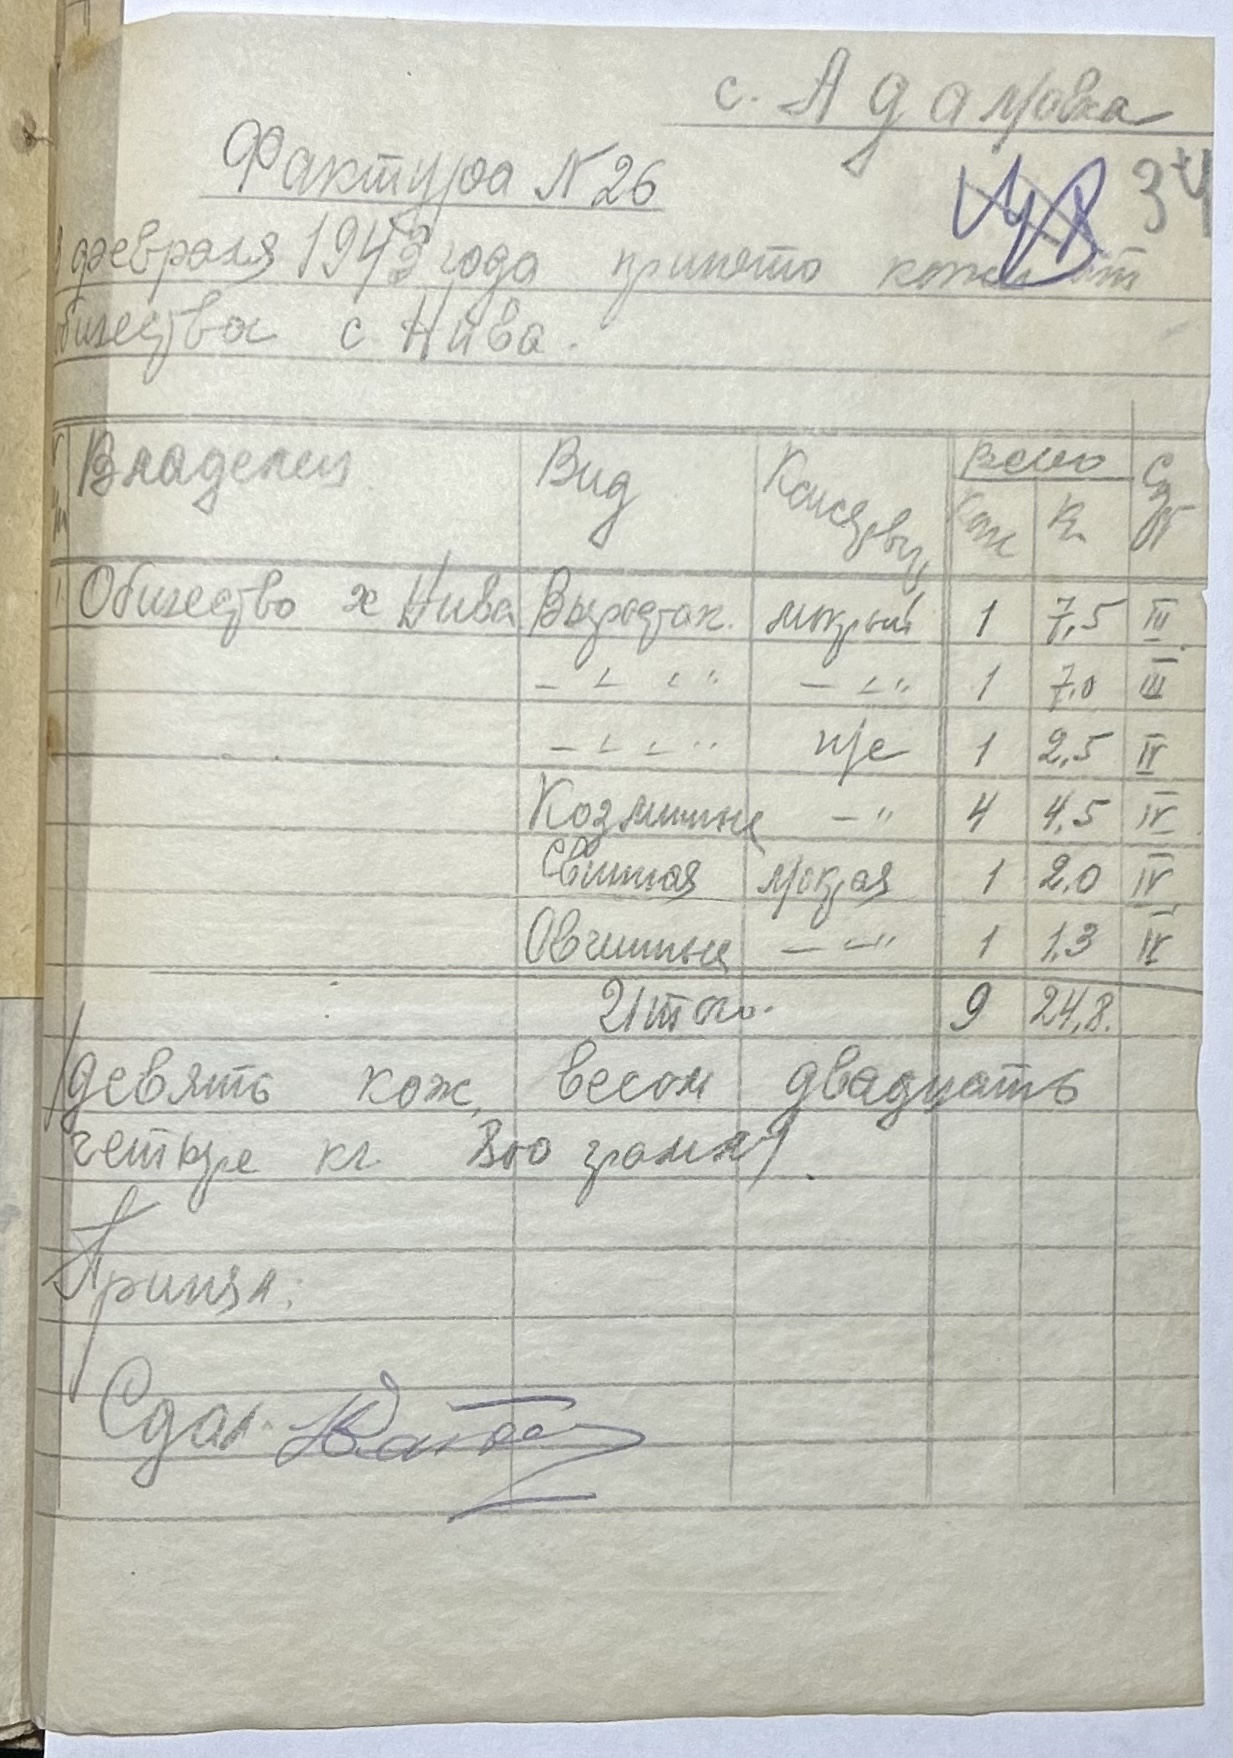 с. Адамовка
Фактура N 26
34
февраля 1943 года принято кожи от
общества с Нива.
Владелец Вид Консервы всего Сорт
Кож Кг
1. Общество х Нива Выросток мокрый 1 7,5 III
— " — " 1 7,0 III
— " п/с 1 2,5 IV
Козлиные — " 4 4,5 IV
Свиная мокрая 1 2,0 IV
Овчины — " 1 1,3 IV
Итого 9 24,8.
/девять кож, весом двадцать
четыре кг 800 грамм/.
Принял:
Сдал.